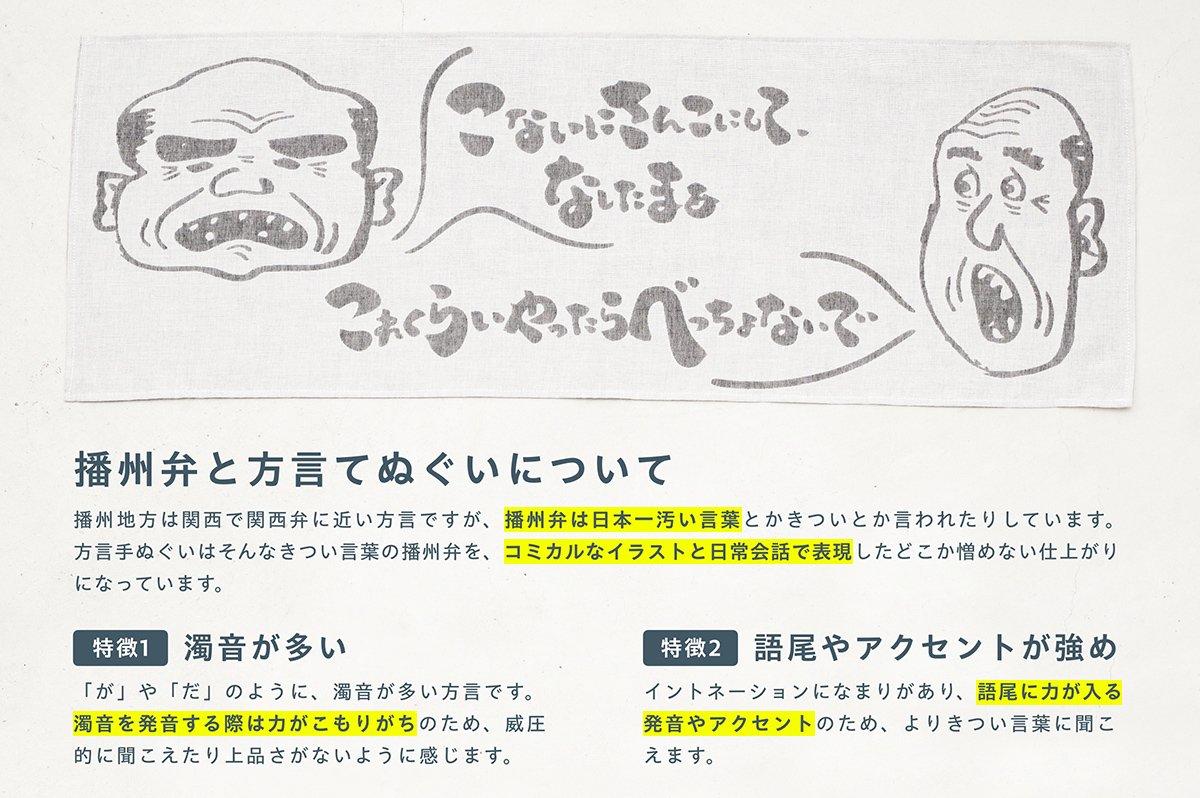 こないにさんこにして、
なしたまぁ
これくらいやったらべっちょないで
播州弁と方言てぬぐいについて
播州地方は関西で関西弁に近い方言ですが、播州弁は日本一汚い言葉とかきついとか言われたりしています。
方言手ぬぐいはそんなきつい言葉の播州弁を、コミカルなイラストと日常会話で表現したどこか憎めない仕上がり
になっています。
特徴1 濁音が多い
「が」や「だ」のように、濁音が多い方言です。
濁音を発音する際は力がこもりがちのため、威圧
的に聞こえたり上品さがないように感じます。
特徴2 語尾やアクセントが強め
イントネーションになまりがあり、語尾に力が入る
発音やアクセントのため、よりきつい言葉に聞こ
えます。